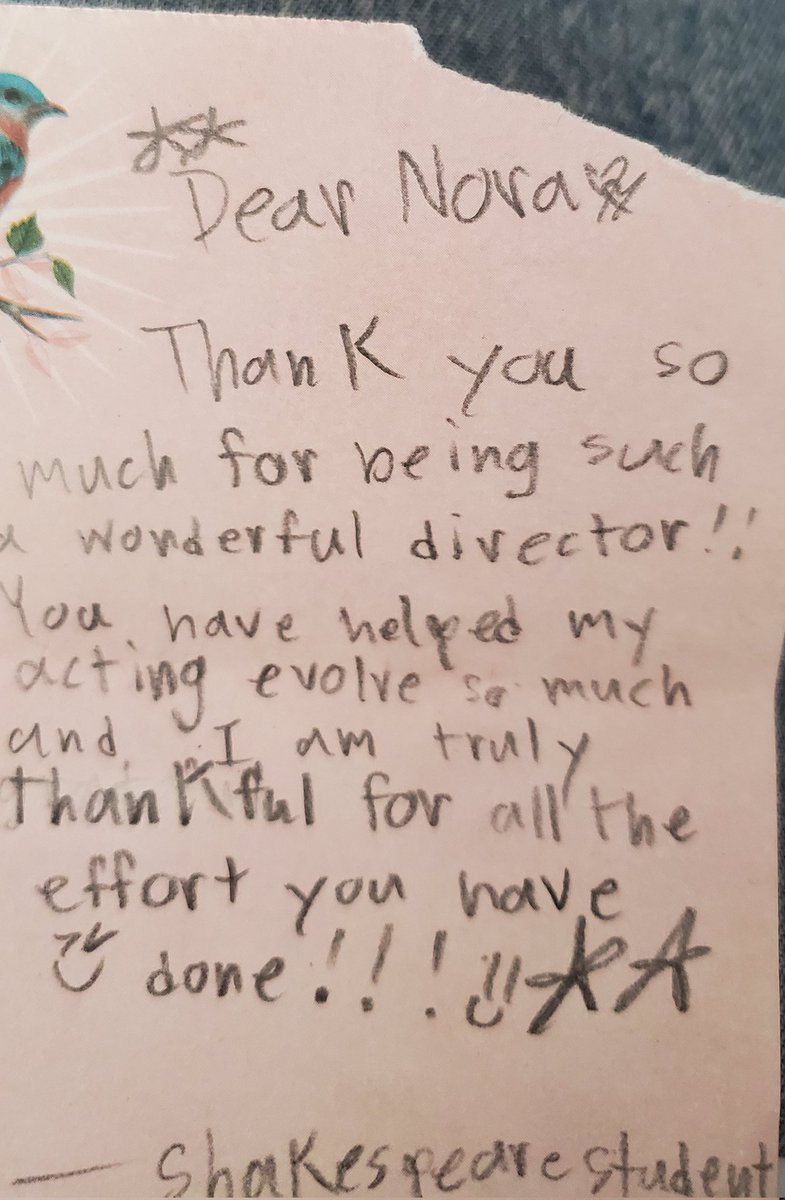 Dear Nora
Thank you so
much for being such
a wonderful director!!
You have helped my
acting evolve so much
and I am truly
thankful for all the
effort you have
done!!!
— Shakespeare student